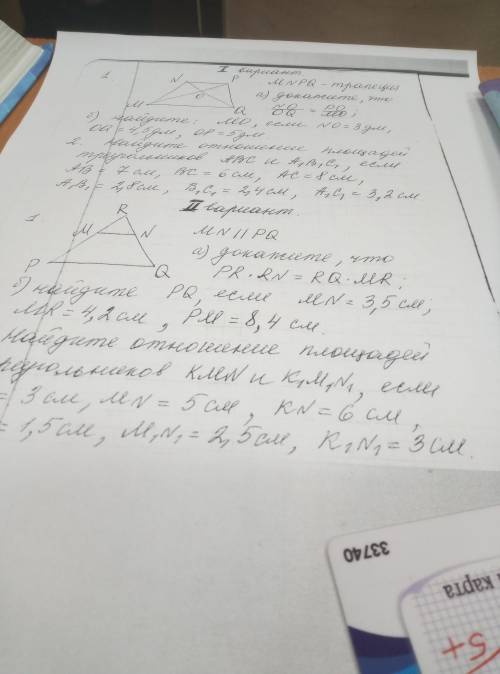 I вариант
1.
N
P
O
M
Q
MNPQ - трапеция
а) докажите, что
NO/OQ = PO/MO;
б) найдите: MO, если NO = 3 дм,
OQ = 4,5 дм, OP = 5 дм
2. Найдите отношение площадей
треугольников ABC и A₁B₁C₁, если
AB = 7 см, BC = 6 см, AC = 8 см,
A₁B₁ = 2,8 см, B₁C₁ = 2,4 см, A₁C₁ = 3,2 см
II вариант.
1.
R
M
N
P
Q
MN || PQ
а) докажите, что
PR · RN = RQ · MR;
б) найдите PQ, если MN = 3,5 см,
MR = 4,2 см, PM = 8,4 см.
Найдите отношение площадей
реугольников KMN и K₁M₁N₁, если
= 3 см, MN = 5 см, KN = 6 см,
= 1,5 см, M₁N₁ = 2,5 см, K₁N₁ = 3 см.
33740
карта
5+